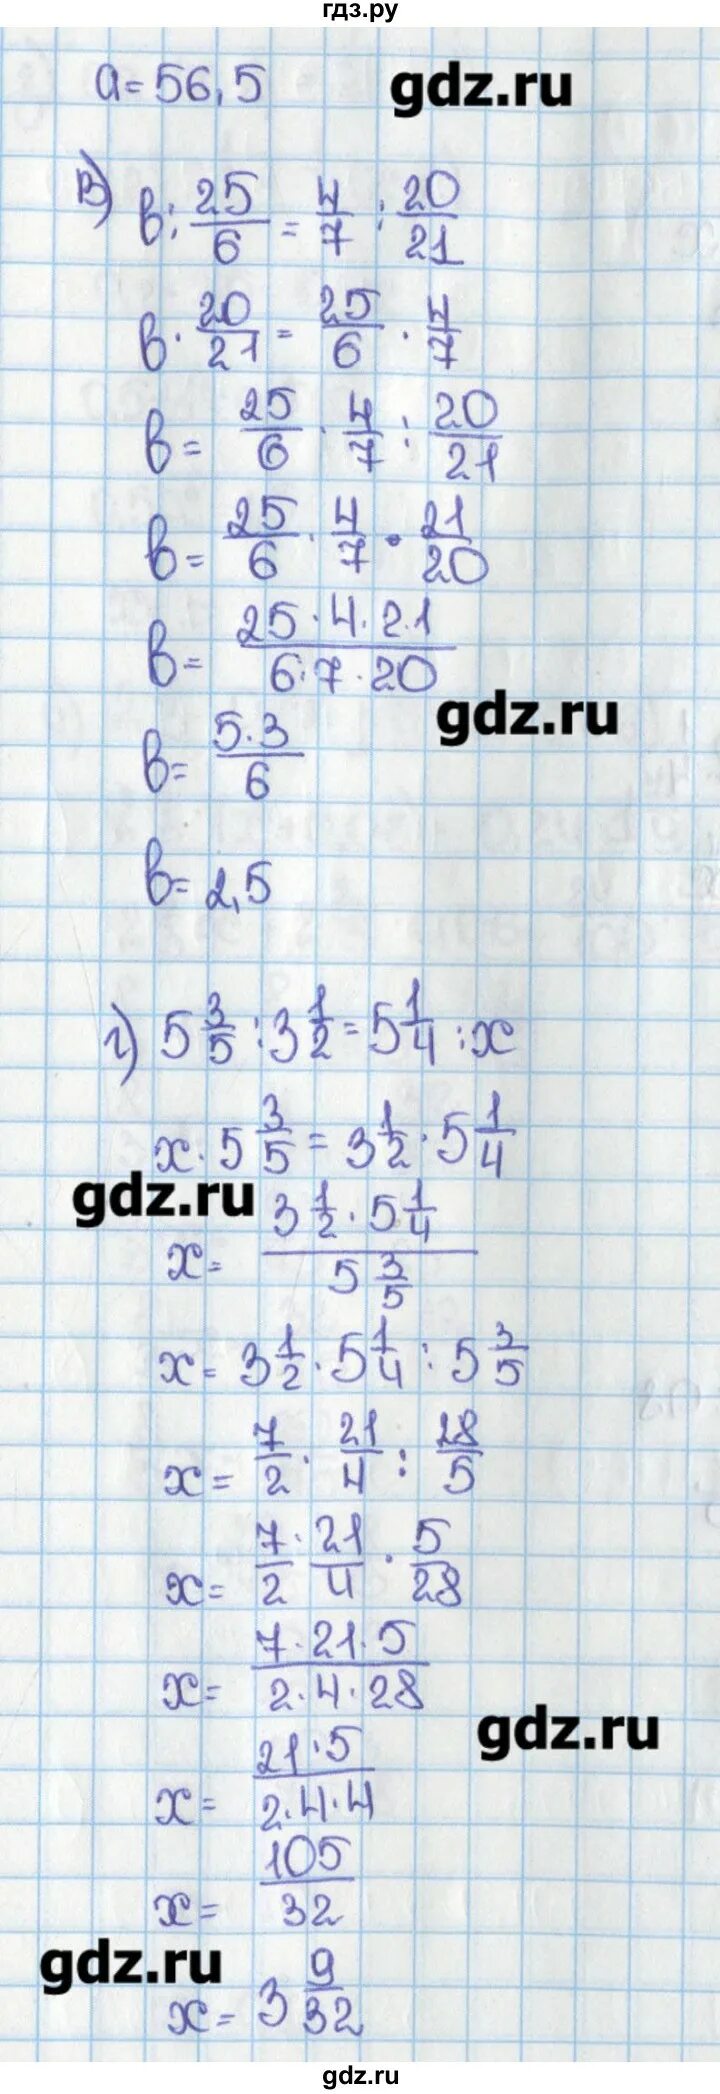 гдз.ру
a=56,5
gdz.ru
в) в:25/6=4/7:20/21
в·20/21=25/6·4/7
в=25/6·4/7:20/21
в=25/6·4/7·21/20
в=25·4·21/6·7·20
gdz.ru
в=5·3/6
в=2,5
г) 5 3/5:3 1/2=5 1/4:x
x·5 3/5=3 1/2·5 1/4
gdz.ru
x=3 1/2·5 1/4/5 3/5
x=3 1/2·5 1/4:5 3/5
x=7/2·21/4:28/5
x=7/2·21/4·5/28
x=7·21·5/2·4·28
gdz.ru
x=21·5/2·4·4
x=105/32
gdz.ru
x=3 9/32
gdz.ru